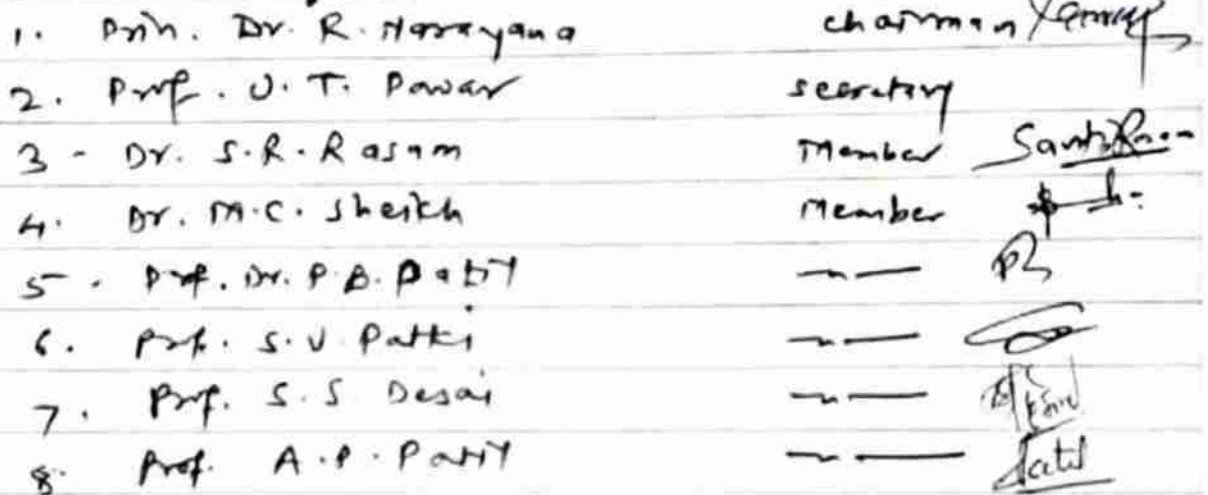 1. Prin. Dr. R. Narayana chairman
2. Prof. U. T. Pawar secretary
3 - Dr. S. R. Rasam Member
4. Dr. M. C. Sheikh Member
5 - Prof. Dr. P. B. Patil —"—
6. Prof. S. V Patki —"—
7. Prof. S. S Desai —"—
8. Prof. A. P. Patil —"— Patil